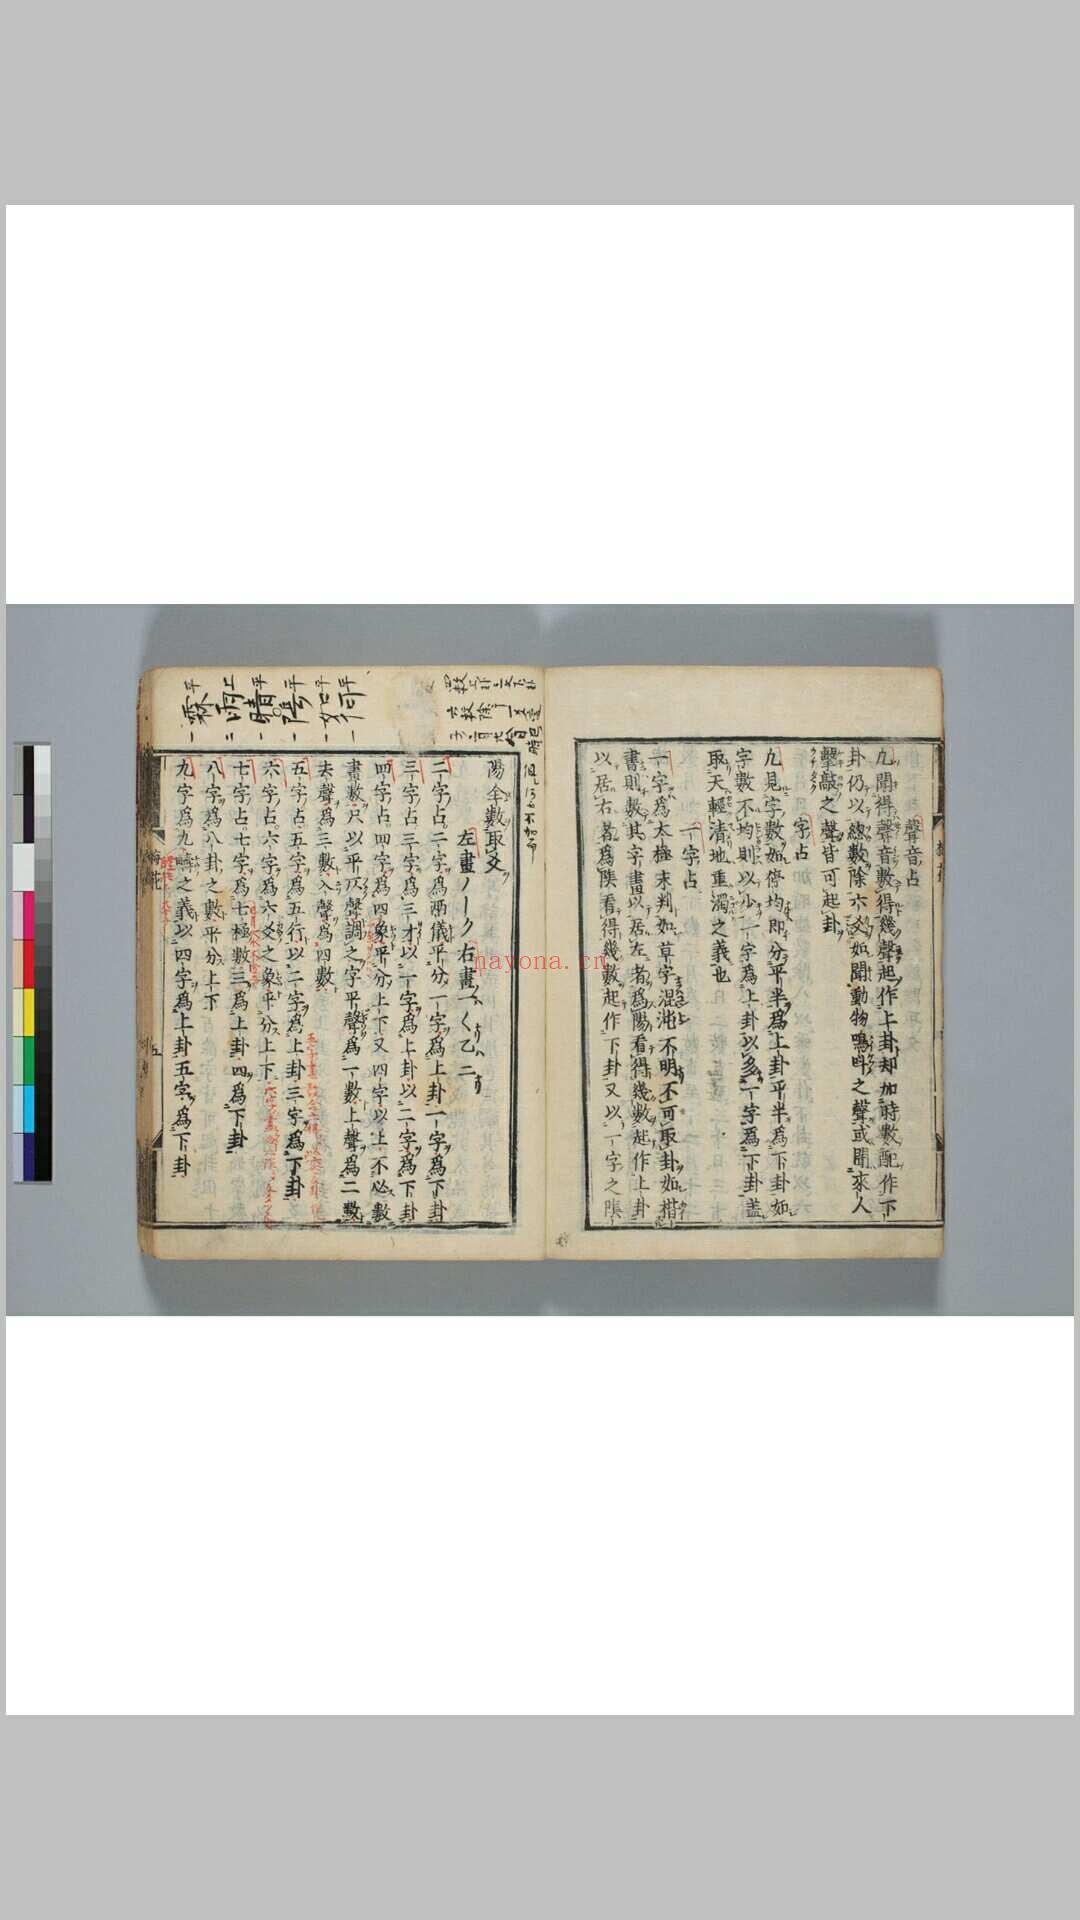 聲音占
凡聞得聲音數得幾聲起作上卦却加時數配作下
卦仍以總數除六爻如聞動物鳴呌之聲或聞來人
擊敲之聲皆可起卦
字占
凡見字數如停均即分平半爲上卦平半爲下卦如
字數不均則以少一字爲上卦以多一字爲下卦蓋
取天輕清地重濁之義也
一字占
一字爲太極未判如草字混沌不明不可取卦如楷
書則數其字畫以居左者爲陽看得幾數起作上卦
以居右者爲陰看得幾數起作下卦又以一字之陰
陽全數取爻
左畫丿一ク右畫一乀乙二
二字占二字爲兩儀平分一字爲上卦一字爲下卦
三字占三字爲三才以一字爲上卦以二字爲下卦
四字占四字爲四象平分上下又四字以上不必數
畫數只以平仄聲調之字平聲爲一數上聲爲二數
去聲爲三數入聲爲四數
五字占五字爲五行以二字爲上卦三字爲下卦
六字占六字爲六爻之象平分上下
七字占七字爲七極數三爲上卦四爲下卦
八字爲八卦之數平分上下
九字爲九疇之義以四字爲上卦五字爲下卦
平 何 一
平 如 一
平 陰 一
平 晴 一
上 雨 二
平 霖 一
梅花
五
nayona.cn